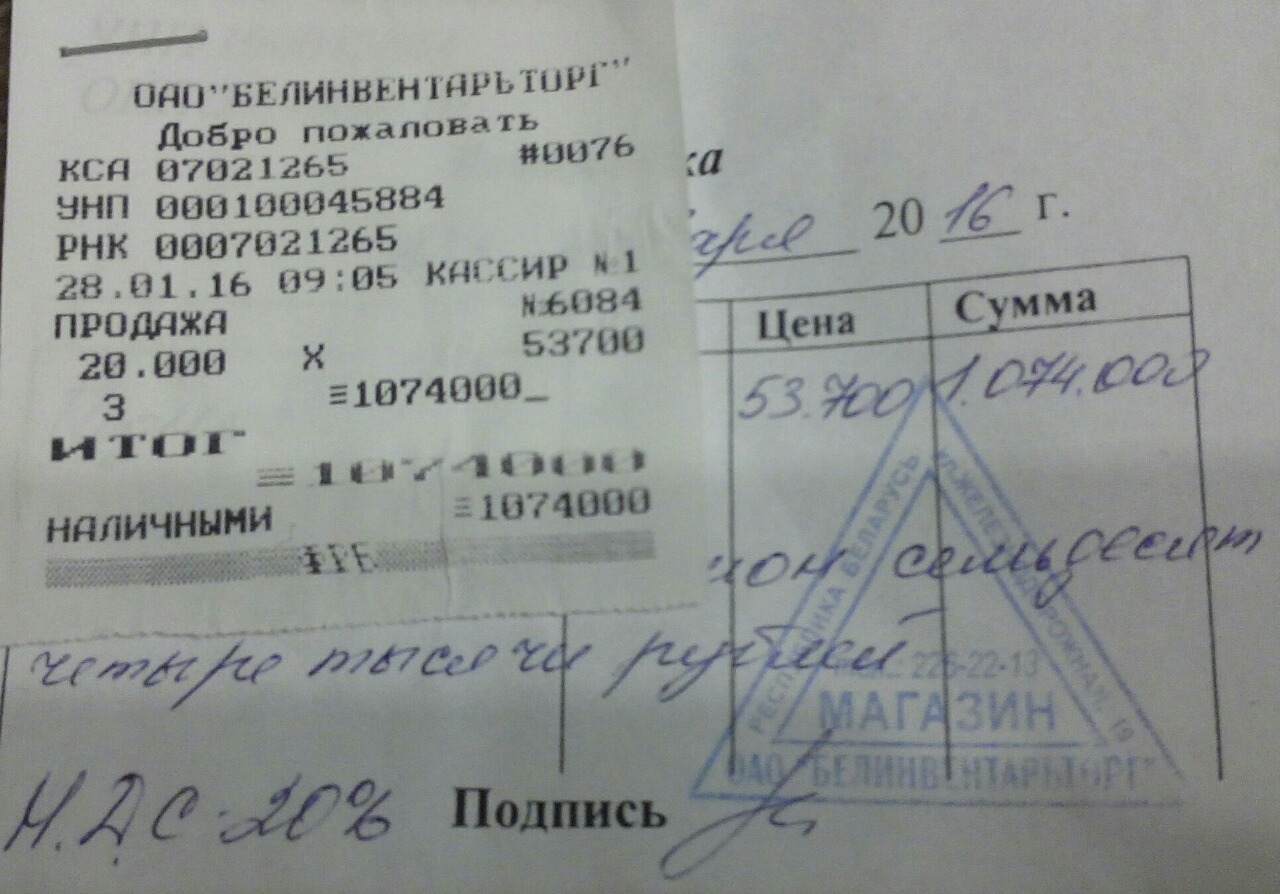 ОАО"БЕЛИНВЕНТАРЬТОРГ"
Добро пожаловать
КСА 07021265 #0076
УНП 000100045884
РНК 0007021265
28.01.16 09:05 КАССИР №1
ПРОДАЖА №6084
20.000 X 53700
3 ≡1074000_
ИТОГ
≡1074000
НАЛИЧНЫМИ ≡1074000
ка
аря 2016 г.
Цена Сумма
53.700 1.074.000
он семьдесят
четыре тысячи рублей
Н.ДС-20% Подпись
РЕСПУБЛИКА БЕЛАРУСЬ
ул.ЖЕЛЕЗНОДОРОЖНАЯ, 19
тел.: 226-22-13
МАГАЗИН
ОАО "БЕЛИНВЕНТАРЬТОРГ"